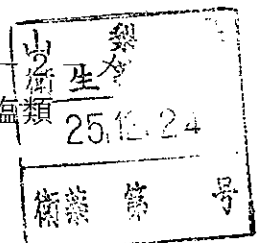 山梨
衛生
塩類
25.12.24
衛薬 第 号